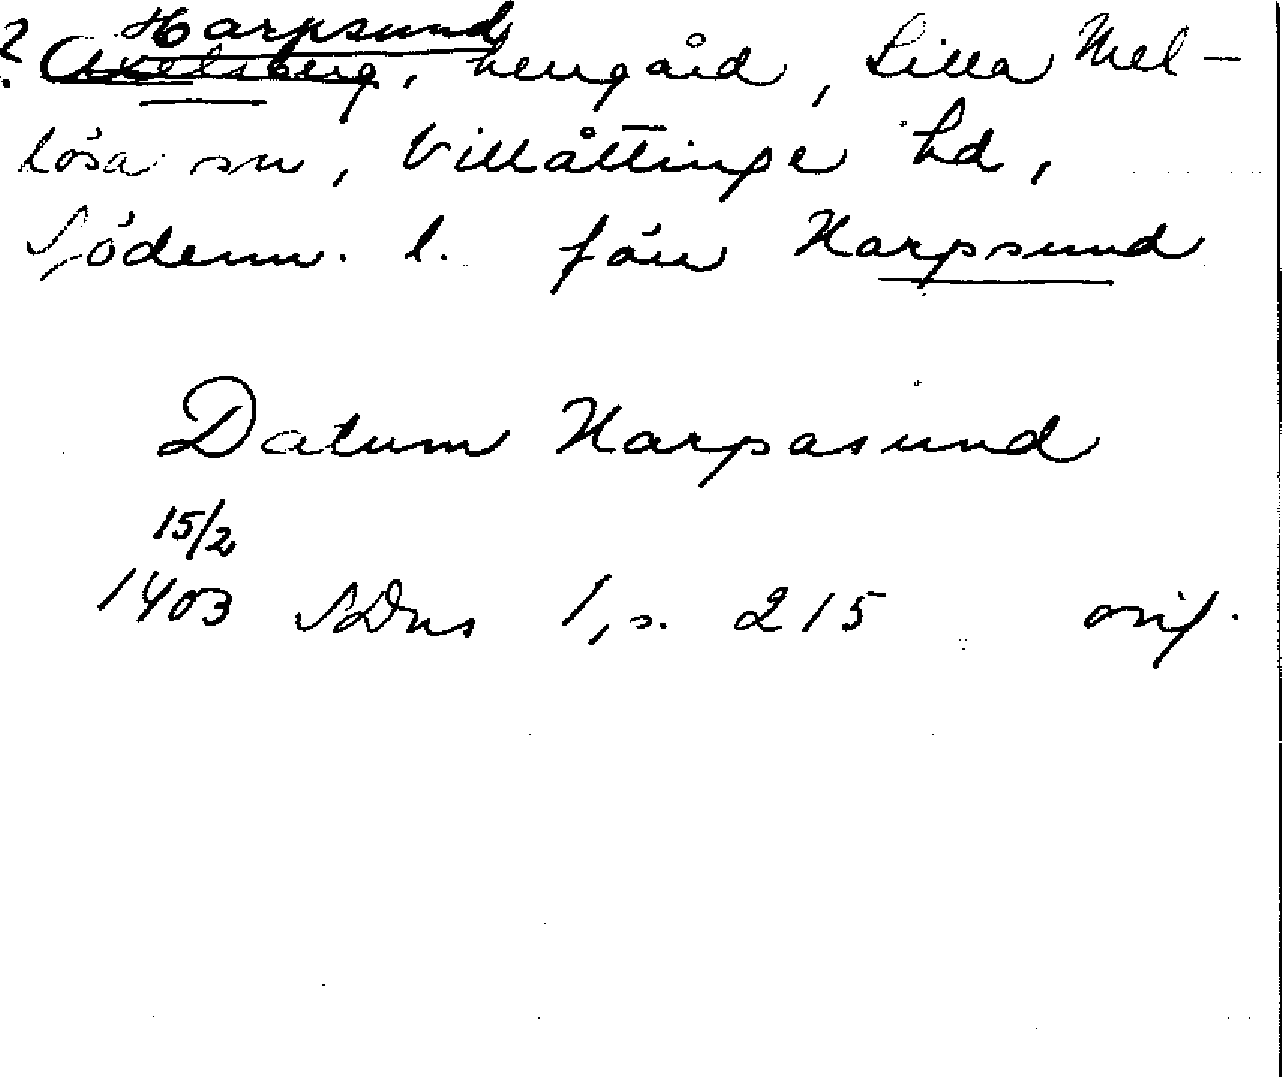 Harpsund
? Axelsberg, herrgård, Lilla Mel-
lösa sn, Villåttinge hd,
Söderm. l. förr Harpsund
Datum Harpasund
15/2
1403 SDns 1, s. 215 orig.